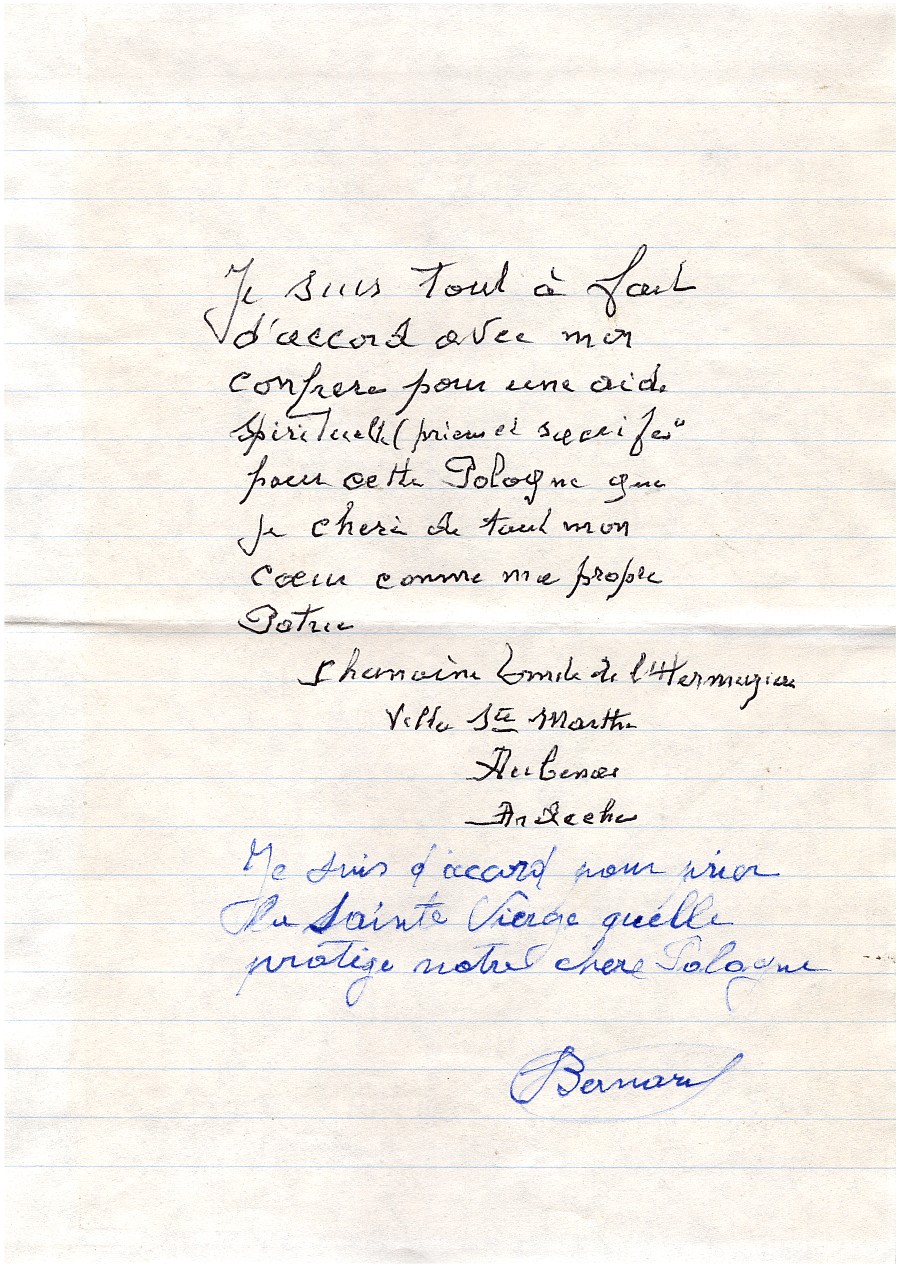 Je suis tout à fait
d'accord avec mon
confrere pour une aide
spirituelle (prieres et sacrifes"
pour cette Pologne que
je cheri de tout mon
coeur comme ma propre
Patrie
Chanoine Emile de l'Hermuziere
Villa Ste Marthe
Aubenas
Ardeche
Je suis d'accord pour prier
la Sainte Vierge quélle
protige notre chere Pologne
Bernard